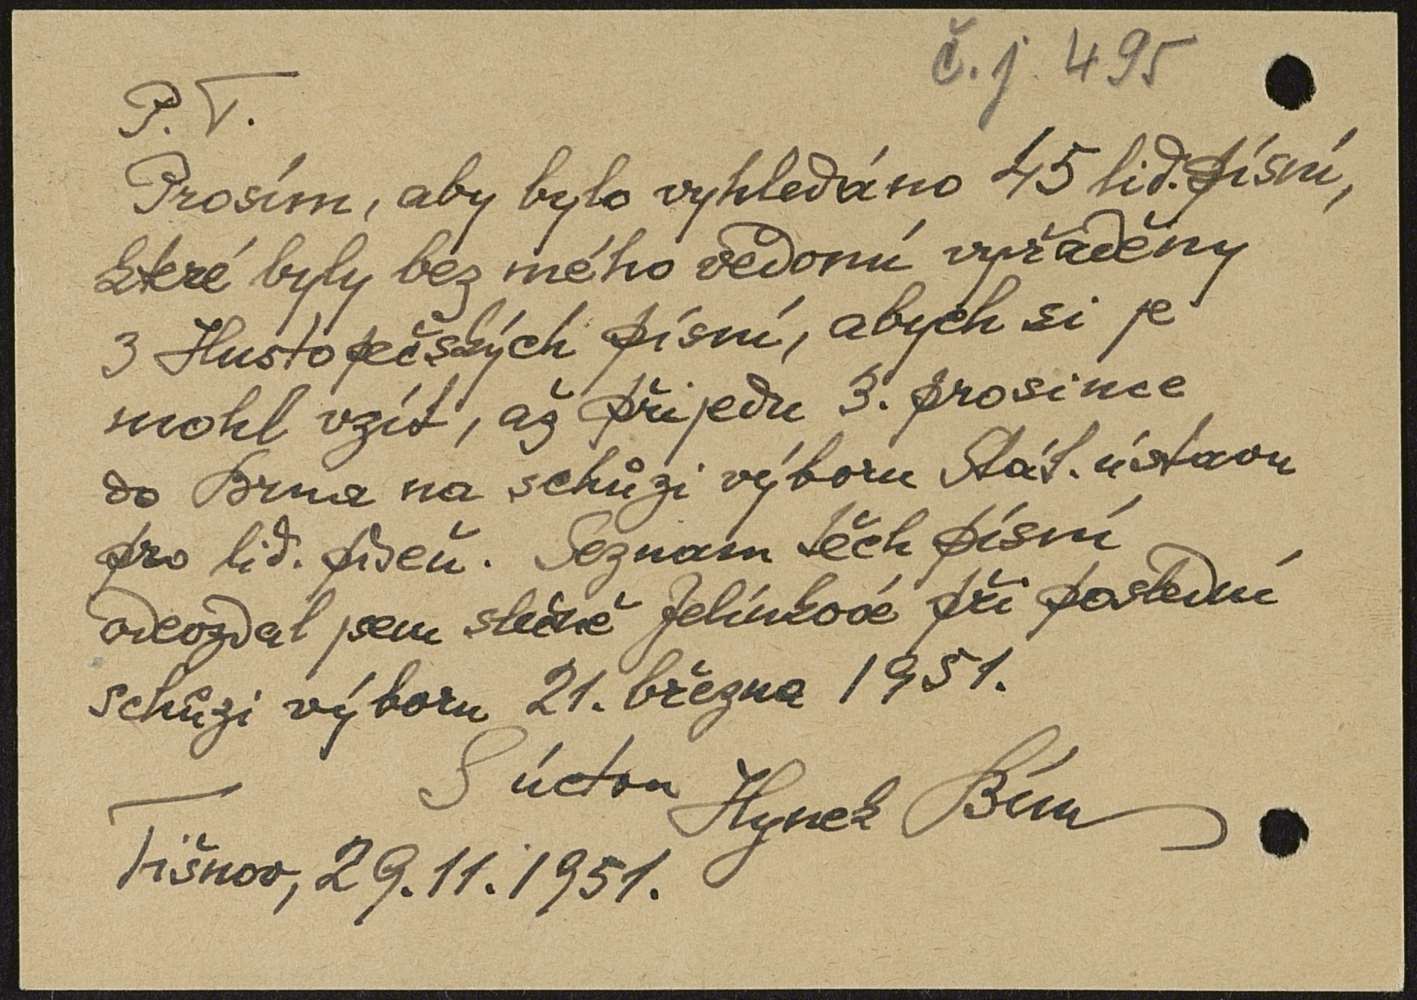 č. j. 495
P. T.
Prosím, aby bylo vyhledáno 45 lid. písní,
které byly bez mého vědomí vyřaděny
z Hustopečských písní, abych si je
mohl vzít, až přijedu 3. prosince
do Brna na schůzi výboru Stát. ústavu
pro lid. píseň. Seznam těch písní
odevzdal jsem slečně Jelínkové při poslední
schůzi výboru 21. března 1951.
S úctou Hynek Bím
Tišnov, 29.11.1951.